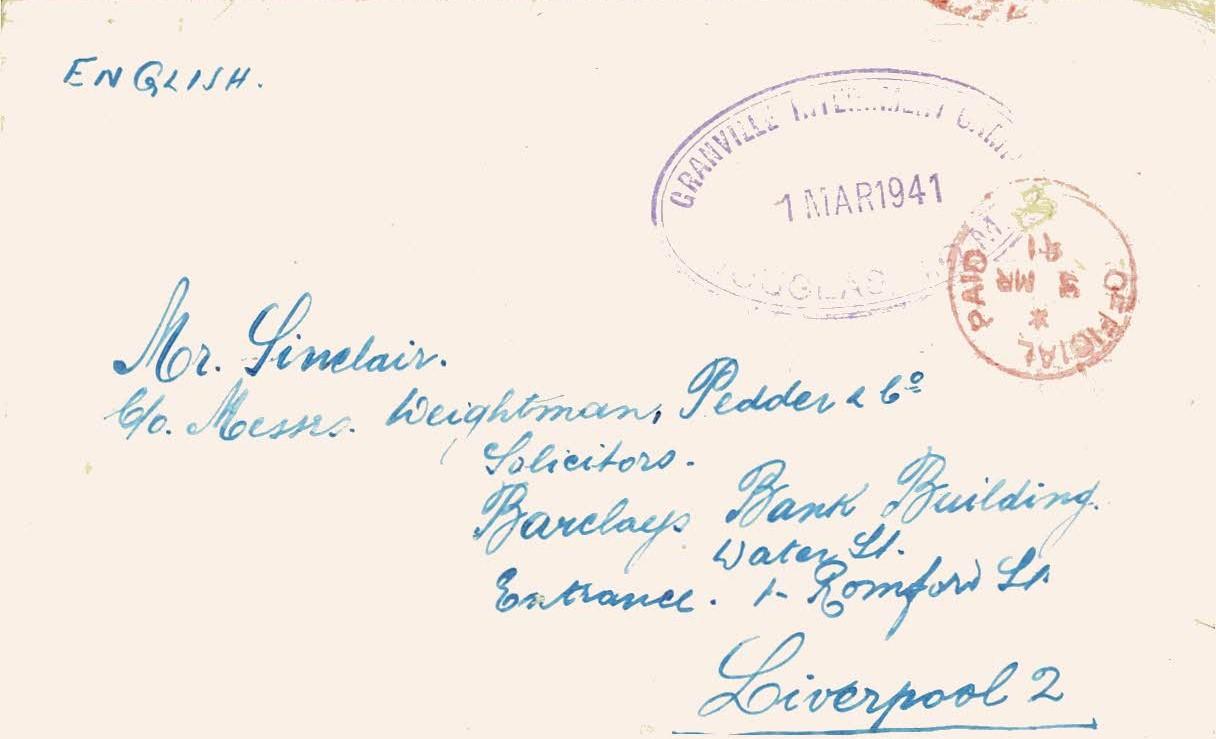 ENGLISH.
GRANVILLE INTERNMENT CAMP
1 MAR 1941
DOUGLAS I.O.M.
OFFICIAL PAID
MR
41
Mr. Sinclair.
C/o. Messrs. Weightman, Pedder & Co
Solicitors.
Barclays Bank Building.
Water St.
Entrance. 1- Romford St
Liverpool 2